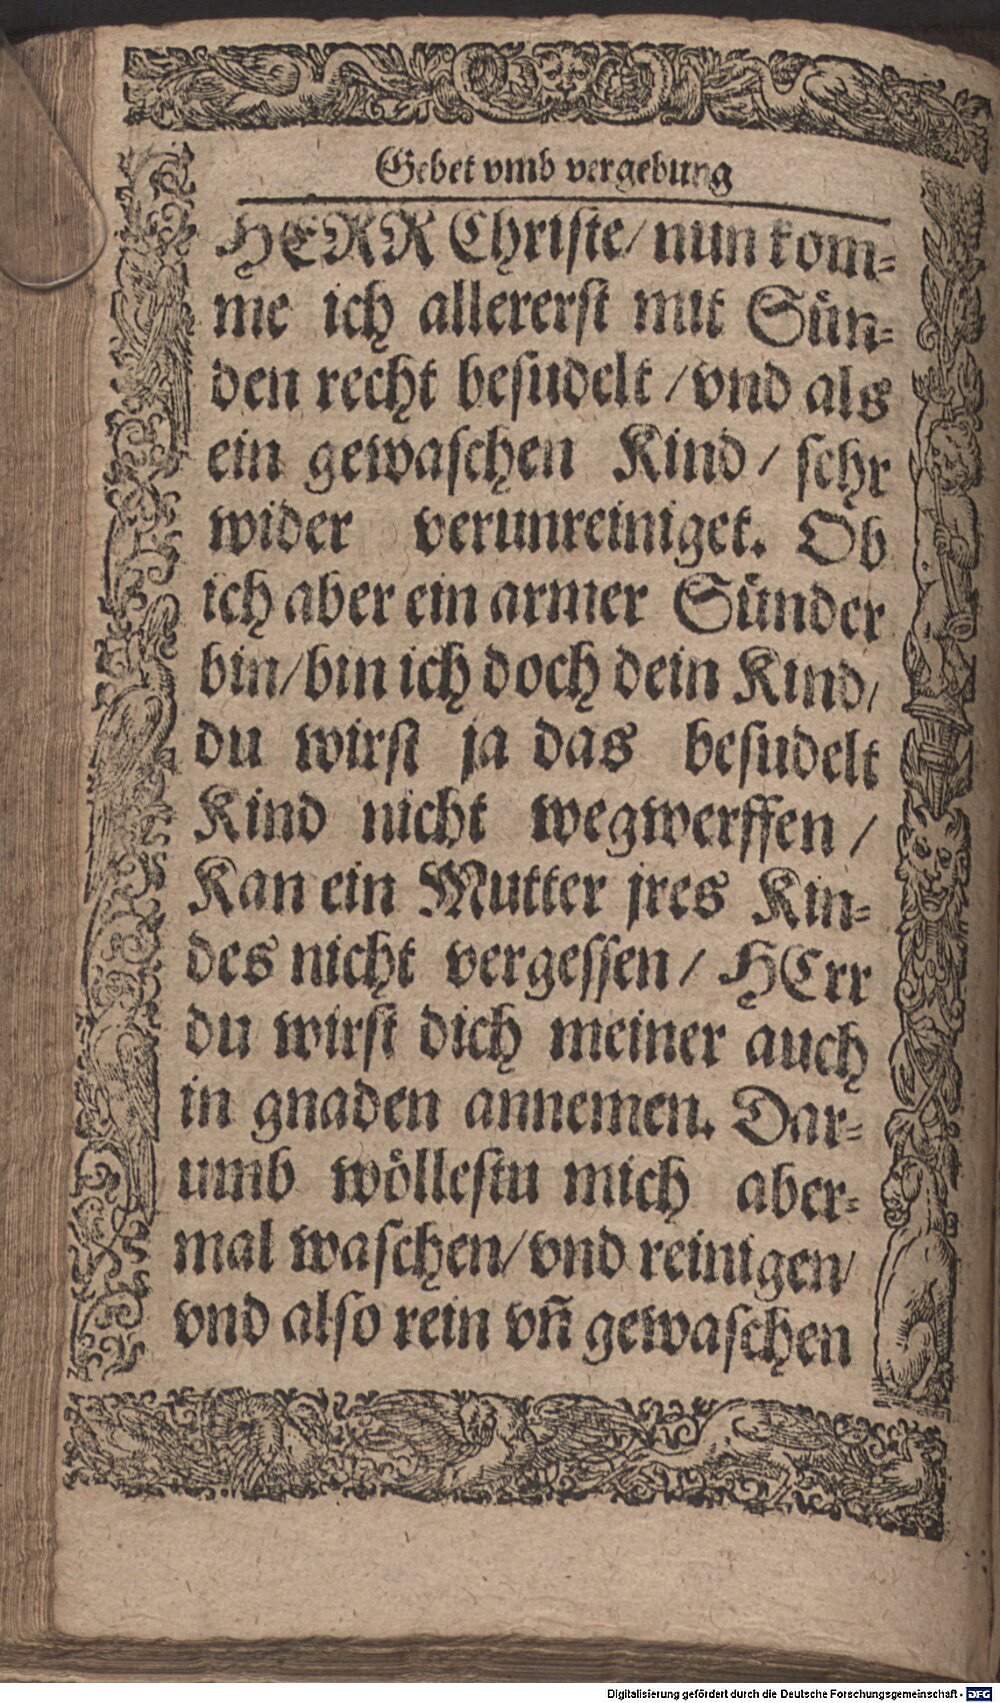 Gebet vmb vergebung
HERR Christe/ nun kom-
me ich allererst mit Sün-
den recht besudelt/ vnd als
ein gewaschen Kind/ sehr
wider verunreiniget. Ob
ich aber ein armer Sünder
bin/ bin ich doch dein Kind/
du wirst ja das besudelt
Kind nicht wegwerffen/
Kan ein Mutter jres Kin-
des nicht vergessen/ HErr
du wirst dich meiner auch
in gnaden annemen. Dar-
umb wöllestu mich aber-
mal waschen/ vnd reinigen/
vnd also rein vñ gewaschen
Digitalisierung gefördert durch die Deutsche Forschungsgemeinschaft - DFG